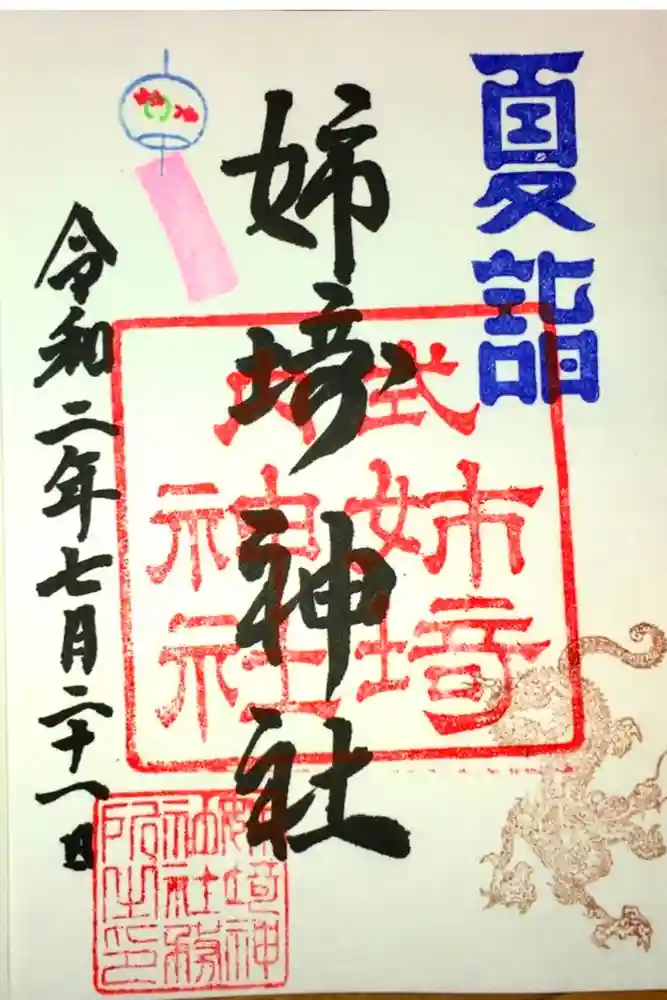 夏詣
姉埼神社
式内
姉埼
神社
令和二年七月二十一日
姉埼神
社社務
所之印